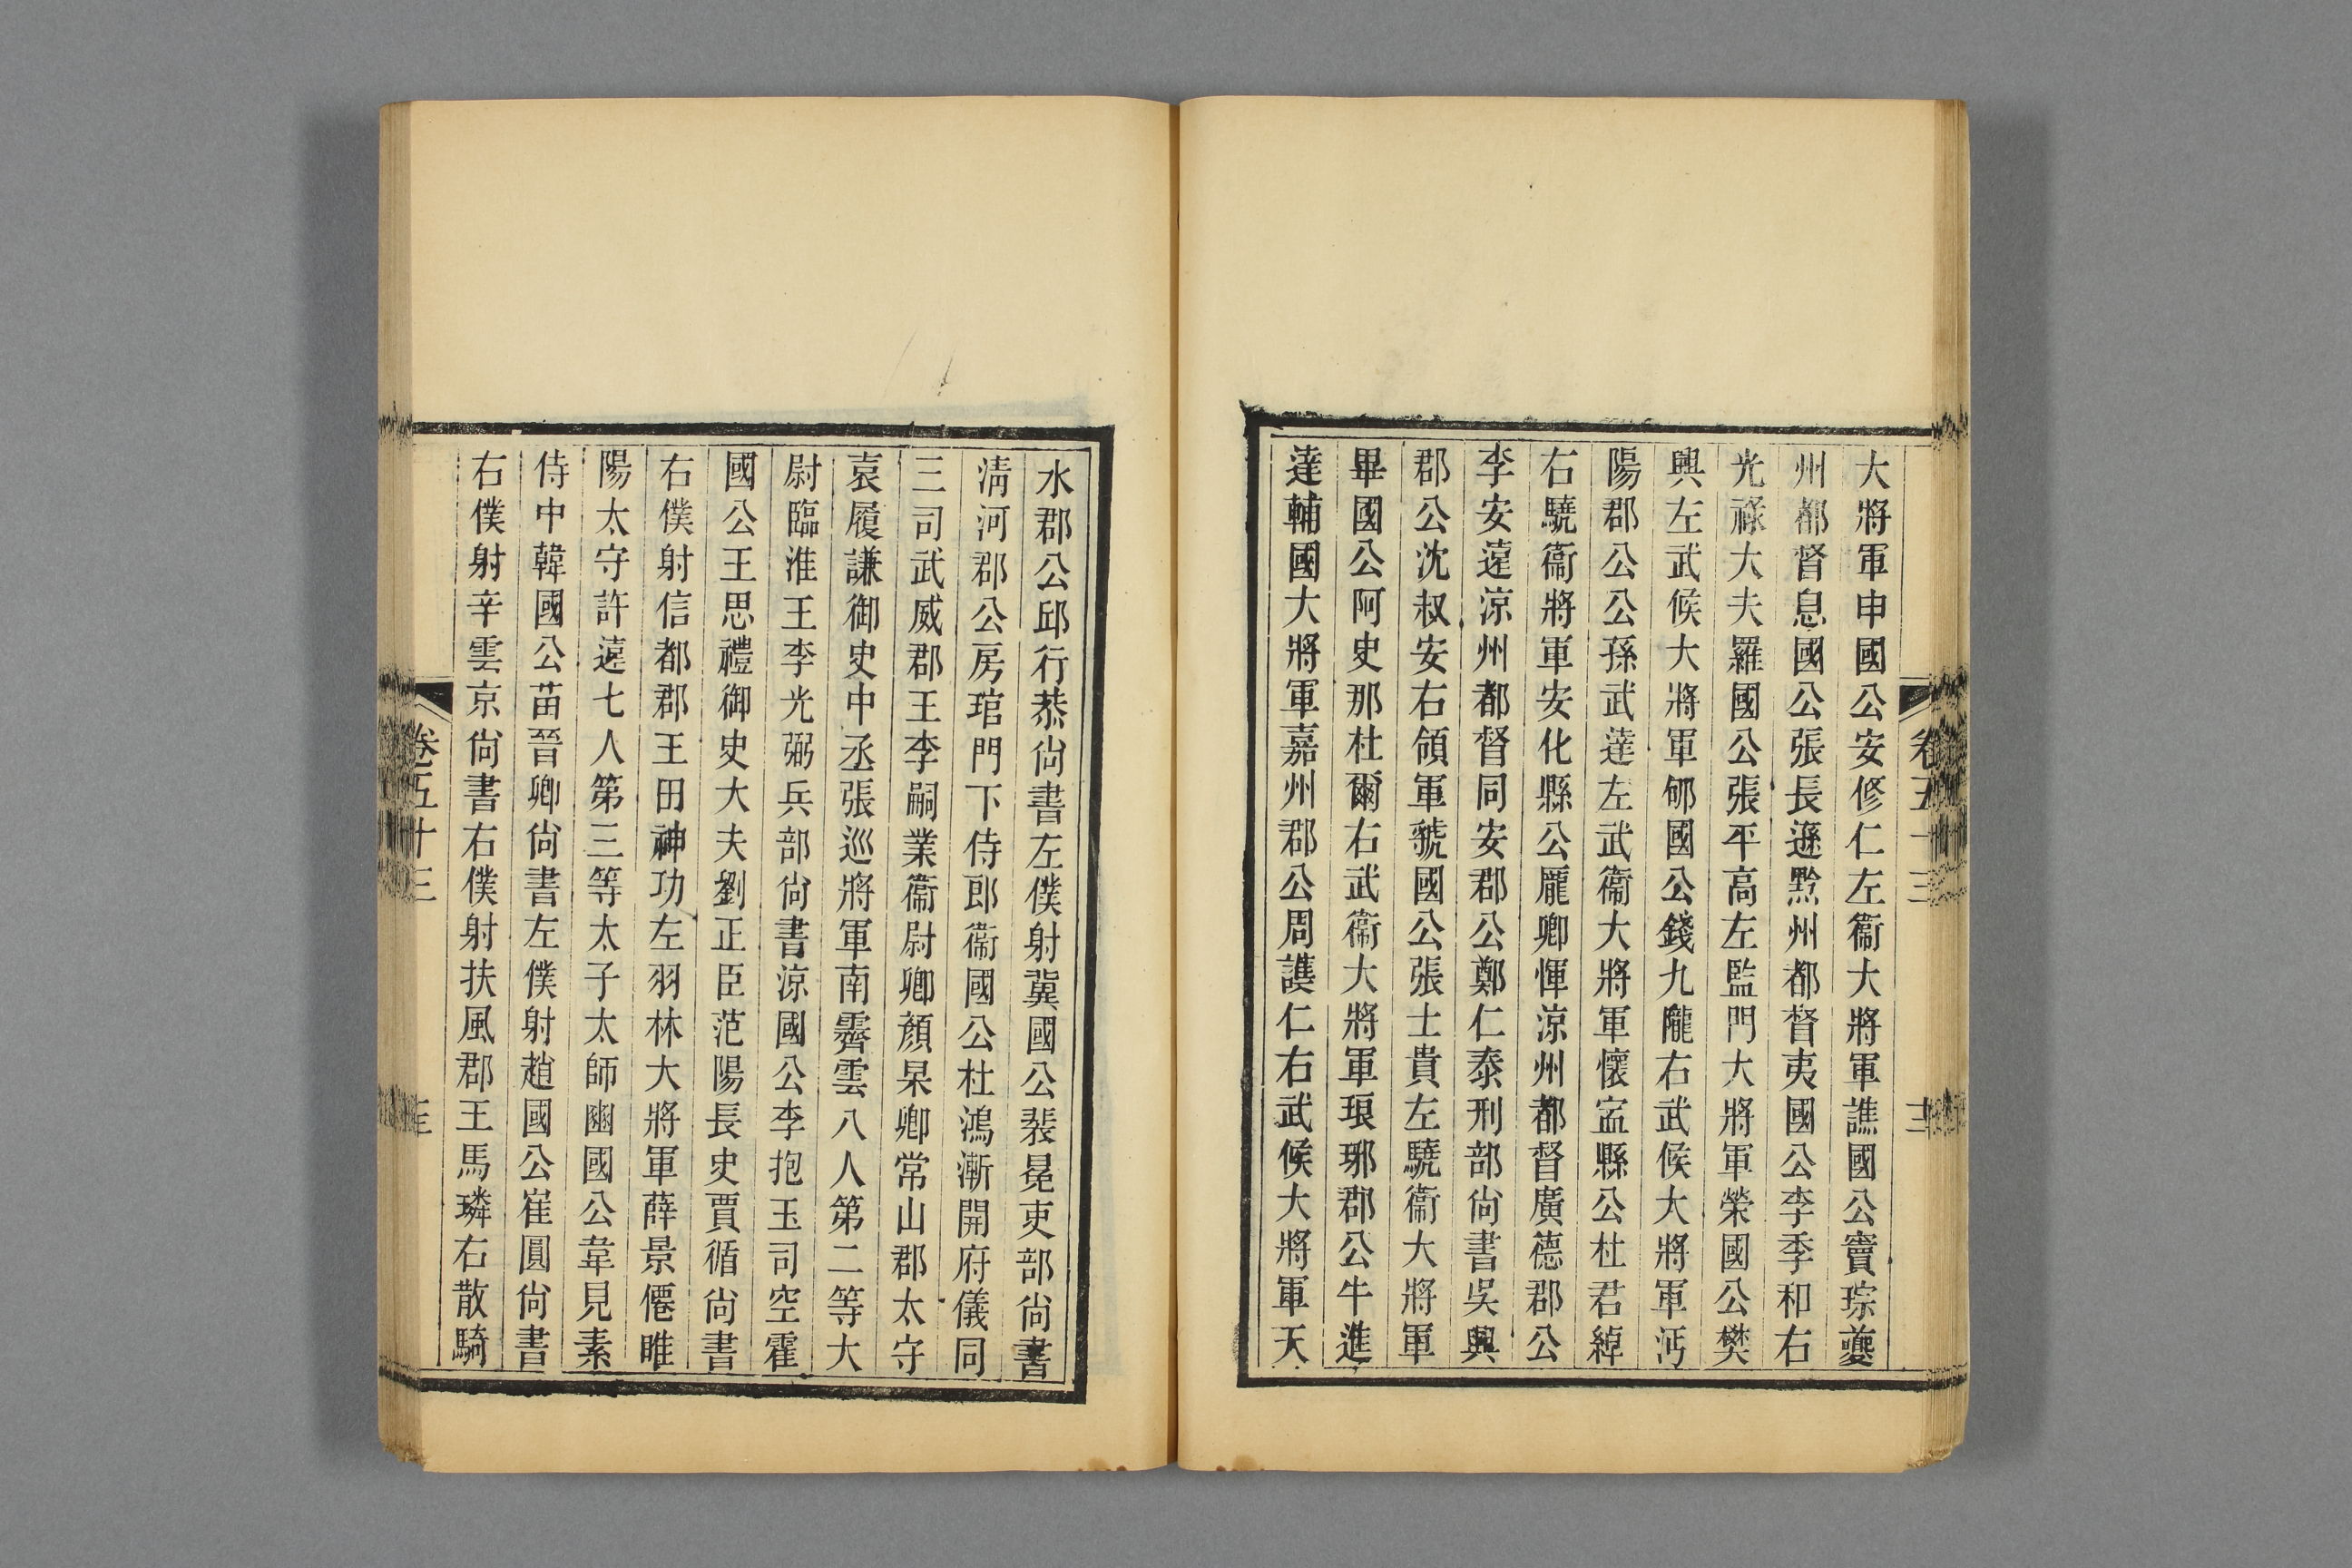 大將軍申國公安修仁左衞大將軍譙國公竇琮夔
州都督息國公張長遜黔州都督夷國公李和右
光祿大夫羅國公張平高左監門大將軍榮國公樊
興左武候大將軍郇國公錢九隴右武候大將軍沔
陽郡公公孫武達左武衞大將軍懷寍縣公杜君綽
右驍衞將軍安化縣公龎卿惲涼州都督廣德郡公
李安遠涼州都督同安郡公鄭仁泰刑部尙書吳興
郡公沈叔安右領軍虢國公張士貴左驍衞大將軍
畢國公阿史那杜爾右武衞大將軍琅琊郡公牛進
達輔國大將軍嘉州郡公周護仁右武候大將軍天
水郡公邱行恭尙書左僕射冀國公裴冕吏部尙書
淸河郡公房琯門下侍郎衞國公杜鴻漸開府儀同
三司武威郡王李嗣業衞尉卿顏杲卿常山郡太守
袁履謙御史中丞張巡將軍南霽雲八人第二等大
尉臨淮王李光弼兵部尙書涼國公李抱玉司空霍
國公王思禮御史大夫劉正臣范陽長史賈循尙書
右僕射信都郡王田神功左羽林大將軍薛景僊睢
陽太守許遠七人第三等太子太師豳國公韋見素
侍中韓國公苗晉卿尙書左僕射趙國公崔圓尙書
右僕射辛雲京尙書右僕射扶風郡王馬璘右散騎
卷五十三